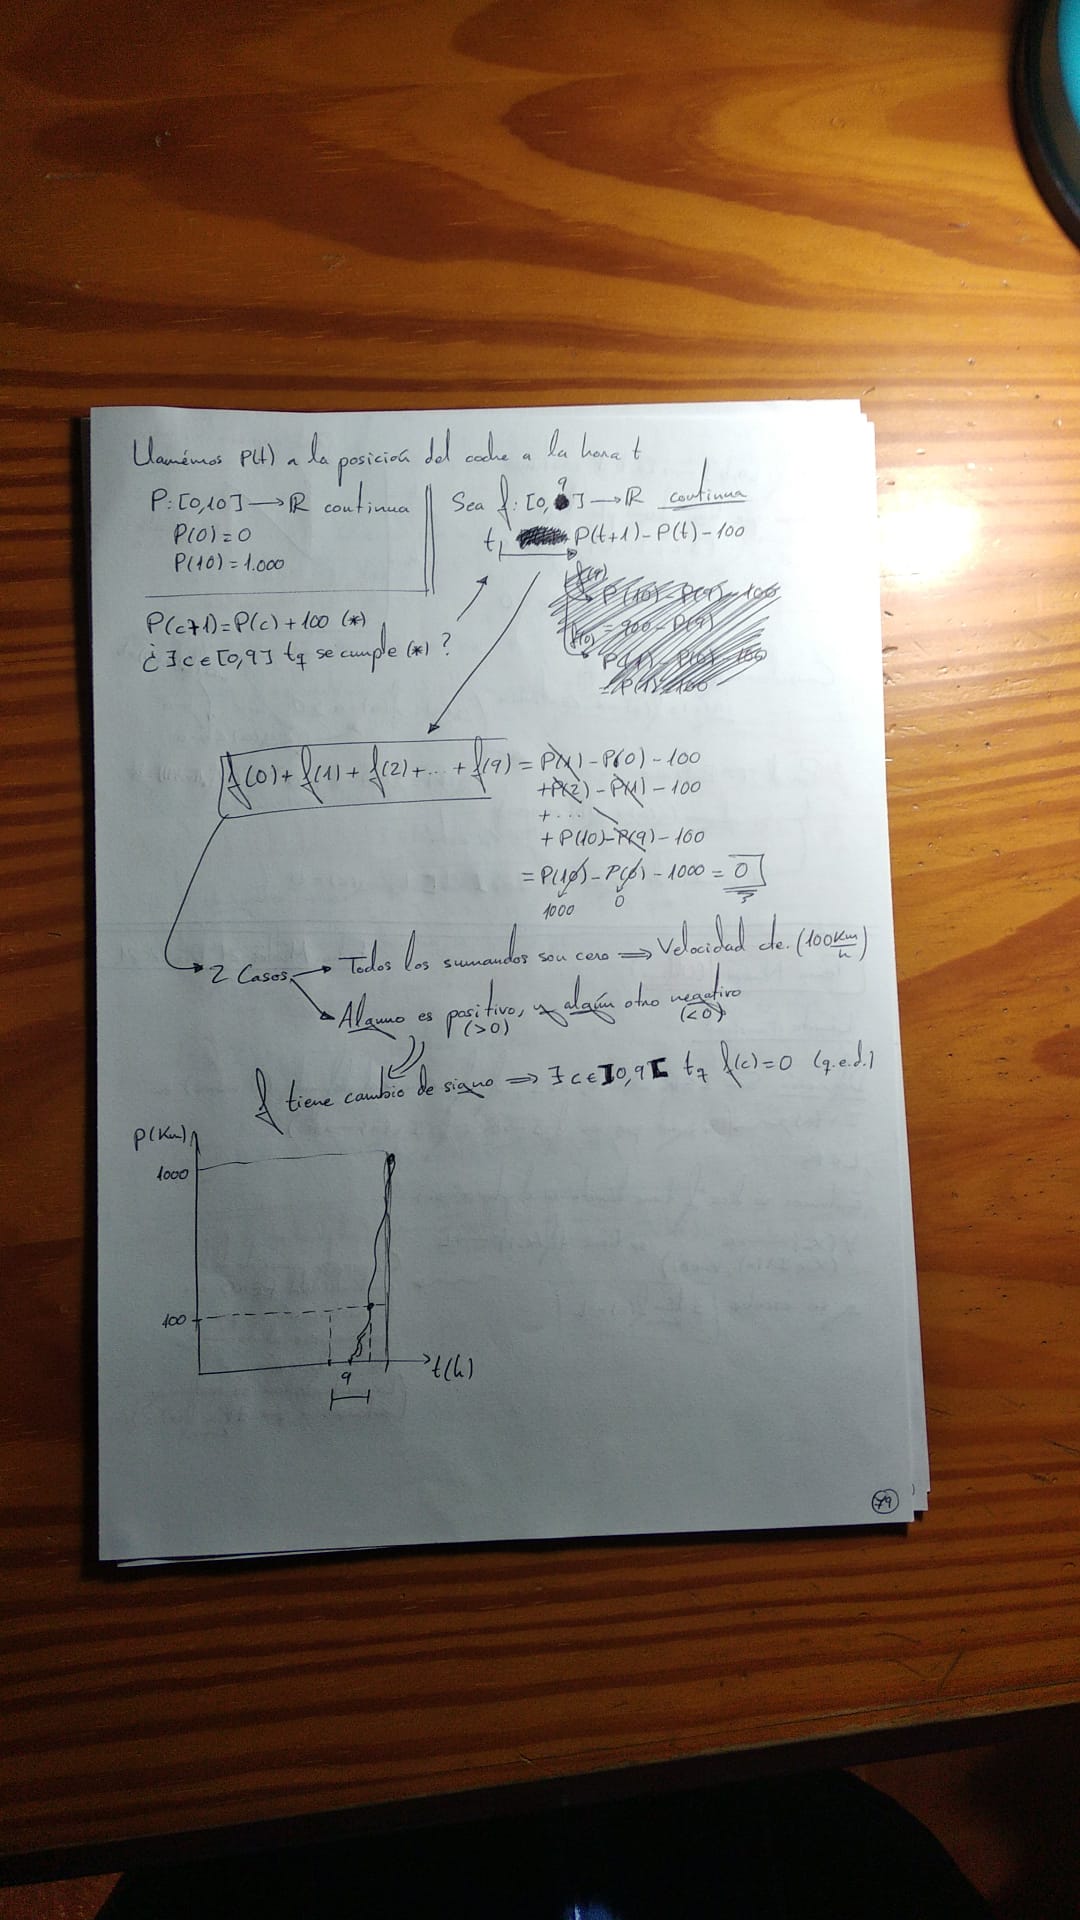 Llamémos P(t) a la posición del coche a la hora t
P: [0,10] ⟶ ℝ continua
P(0) = 0
P(10) = 1.000
Sea f: [0, 9] ⟶ ℝ continua
t ⟼ P(t+1) - P(t) - 100
P(c+1) = P(c) + 100 (*)
¿∃ c ∈ [0,9] tq se cumple (*)?
f(9)
P(10) - P(9) - 100
= 900 - P(9)
f(0)
P(1) - P(0) - 100
= P(1) - 100
f(0) + f(1) + f(2) + ... + f(9) = P(1) - P(0) - 100
+ P(2) - P(1) - 100
+ ...
+ P(10) - P(9) - 100
= P(10) - P(0) - 1000 = 0
1000 0
2 Casos → Todos los sumandos son cero ⟹ Velocidad cte. (100 Km/h)
Alguno es positivo, y algún otro negativo
(>0) (<0)
f tiene cambio de signo ⟹ ∃ c ∈ ]0,9[ tq f(c) = 0 (q.e.d.)
P(Km)
1000
100
9
t(h)
79